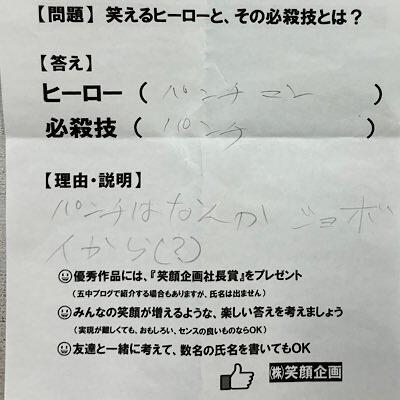 【問題】 笑えるヒーローと、その必殺技とは？
【答え】
ヒーロー （ パンチマン ）
必殺技 （ パンチ ）
【理由・説明】
パンチはなんか ジョボ
イから(?)
優秀作品には、『笑顔企画社長賞』をプレゼント
（五中ブログで紹介する場合もありますが、氏名は出ません）
みんなの笑顔が増えるような、楽しい答えを考えましょう
（実現が難しくても、おもしろい、センスの良いものならOK）
友達と一緒に考えて、数名の氏名を書いてもOK
㈱笑顔企画